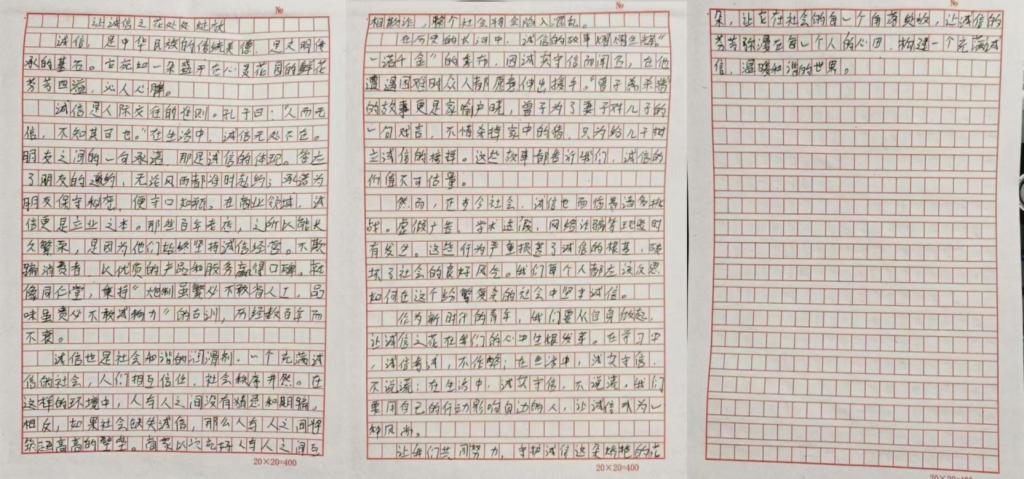 No
让诚信之花处处绽放
诚信，是中华民族的传统美德，是文明传
承的基石。它宛如一朵盛开在心灵花园的鲜花
芳芳四溢，沁人心脾。
诚信是人际交往的准则。孔子曰：“人而无
信，不知其可也。”在生活中，诚信无处不在。
朋友之间的一句承诺，那是诚信的体现。答应
了朋友的邀约，无论风雨都准时赴约；承诺为
朋友保守秘密，便守口如瓶。在商业领域，诚
信更是立业之本。那些百年老店，之所以能长
久繁荣，是因为他们始终坚持诚信经营。不欺
骗消费者，以优质的产品和服务赢得口碑。就
像同仁堂，秉持“炮制虽繁必不敢省人工，品
味虽贵必不敢减物力”的古训，历经数百年而
不衰。
诚信也是社会和谐的润滑剂。一个充满诚
信的社会，人们相互信任，社会秩序井然。在
这样的环境中，人与人之间没有猜忌和欺骗。
相反，如果社会缺失诚信，那么人与人之间将
筑起高高的壁垒。尔虞我诈充斥人与人之间互
20×20=400
No
相欺诈，整个社会将会陷入混乱。
在历史的长河中，诚信的故事熠熠生辉。“
一诺千金”的季布，因诚实守信而闻名，在他
遭遇困难时众人都愿意伸出援手。“曾子杀猪”
的故事更是家喻户晓，曾子为了妻子对儿子的
一句戏言，不惜杀掉家中的猪，只为给儿子树
立诚信的榜样。这些故事都告诉我们，诚信的
价值不可估量。
然而，在当今社会，诚信也面临着诸多挑
战。虚假广告、学术造假、网络诈骗等现象时
有发生。这些行为严重损害了诚信的根基，破
坏了社会的良好风气。我们每个人都应该反思
如何在这个纷繁复杂的社会中坚守诚信。
作为新时代的青年，我们要从自身做起，
让诚信之花在我们的心中生根发芽。在学习中
，诚信考试，不作弊；在生活中，诚实守信，
不说谎；在生活中，诚实守信，不说谎。我们
要用自己的行动影响身边的人，让诚信成为一
种风尚。
让我们共同努力，守护诚信这朵娇艳的花
20×20=400
No
朵，让它在社会的每一个角落绽放，让诚信的
芳芳弥漫在每一个人的心田，构建一个充满诚
信、温暖和谐的世界。
20×20=400